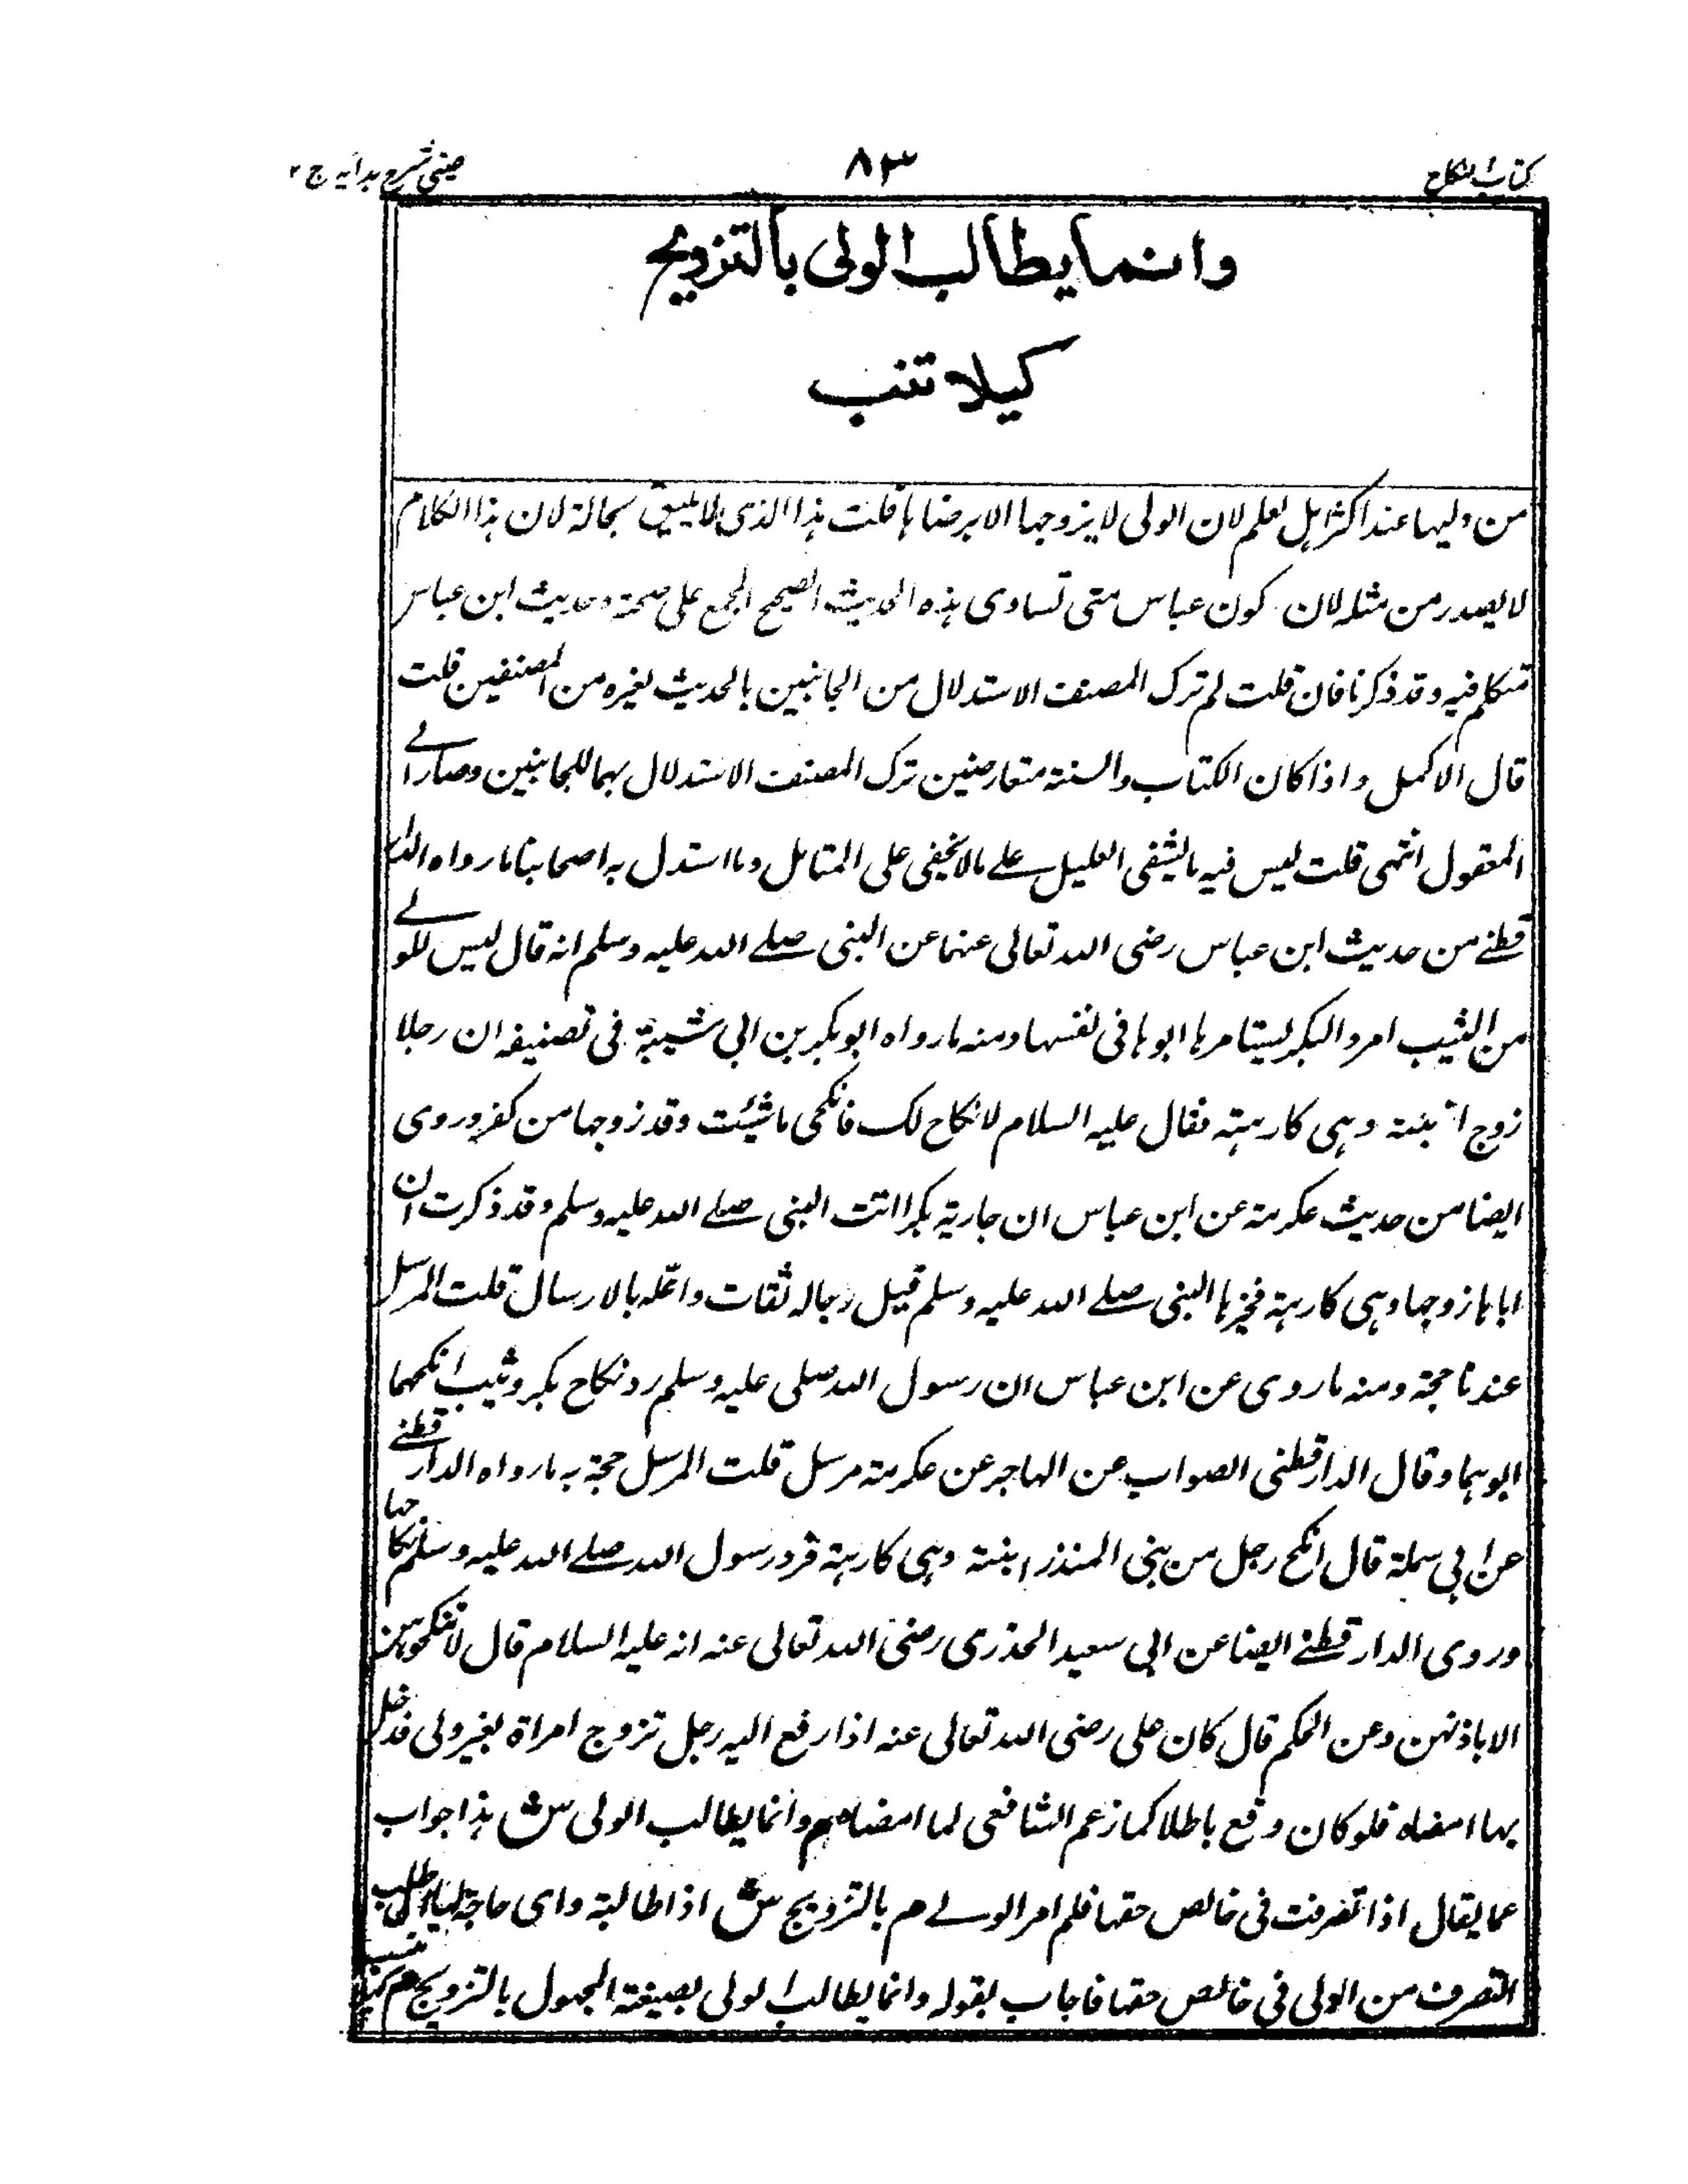 كتاب النكاح
٨٣
عینی شرح ہدایہ ج ٢
وانما يطالب الولى بالتزويج
كيلا تنسب
من وليها عند اكثر اهل العلم لان الولى لا يزوجها الا برضاها قلت هذا الذى لا يليق بحاله لان هذا الكلام
لا يصدر من مثله لان كون عباس متى تساوى هذه الحديث الصحيح المجمع على صحته وحديث ابن عباس
متكلم فيه وقد ذكرنا فان قلت لم ترك المصنف الاستدلال من الجانبين بالحديث لغيره من المصنفين قلت
قال الاكمل واذا كان الكتاب والسنة متعارضين ترك المصنف الاستدلال بهما للجانبين وصار الى
المعقول انتهى قلت ليس فيه ما يشفى العليل على ما لا يخفى على المتامل وما استدل به اصحابنا ما رواه الدار
قطنى من حديث ابن عباس رضى الله تعالى عنهما عن النبى صلى الله عليه وسلم انه قال ليس للولى
من الثيب امر والبكر ليستامرها ابوها فى نفسها ومنه ما رواه ابو بكر بن ابى شيبة فى تصنيفه ان رجلا
زوج ابنته وهى كارهته فقال عليه السلام لا نكاح لك فانكحى ما شئت وقد زوجها من كفر وروى
ايضا من حديث عكرمة عن ابن عباس ان جارية بكرا اتت النبى صلى الله عليه وسلم وقد ذكرت ان
اباها زوجها وهى كارهة فخيرها النبى صلى الله عليه وسلم قيل رجاله ثقات واعله بالارسال قلت المرسل
عندنا حجة ومنه ما روى عن ابن عباس ان رسول الله صلى عليه وسلم رد نكاح بكر وثيب انكحهما
ابوهما وقال الدارقطنى الصواب عن الهاجر عن عكرمة مرسل قلت المرسل حجة به ما رواه الدارقطنى
عن ابى سلمة قال انكح رجل من بنى المنذر ابنته وهى كارهة فرد رسول الله صلى الله عليه وسلم نكاحها
وروى الدارقطنى ايضا عن ابى سعيد الخدرى رضى الله تعالى عنه انه عليه السلام قال لا تنكحوهن
الا باذنهن وعن الحكم قال كان على رضى الله تعالى عنه اذا رفع اليه رجل تزوج امراة بغير ولى فدخل
بها امضاه فلو كان وقع باطلا كما زعم الشافعى لما امضاه م وانما يطالب الولى ش هذا جواب
عما يقال اذا تصرفت فى خالص حقها فلم امر الولى م بالتزويج ش اذا طالبته واى حاجة لها الى طلب
التصرف من الولى فى خالص حقها فاجاب بقوله وانما يطالب الولى بصيغة المجهول بالتزويج م كيلا تنسب